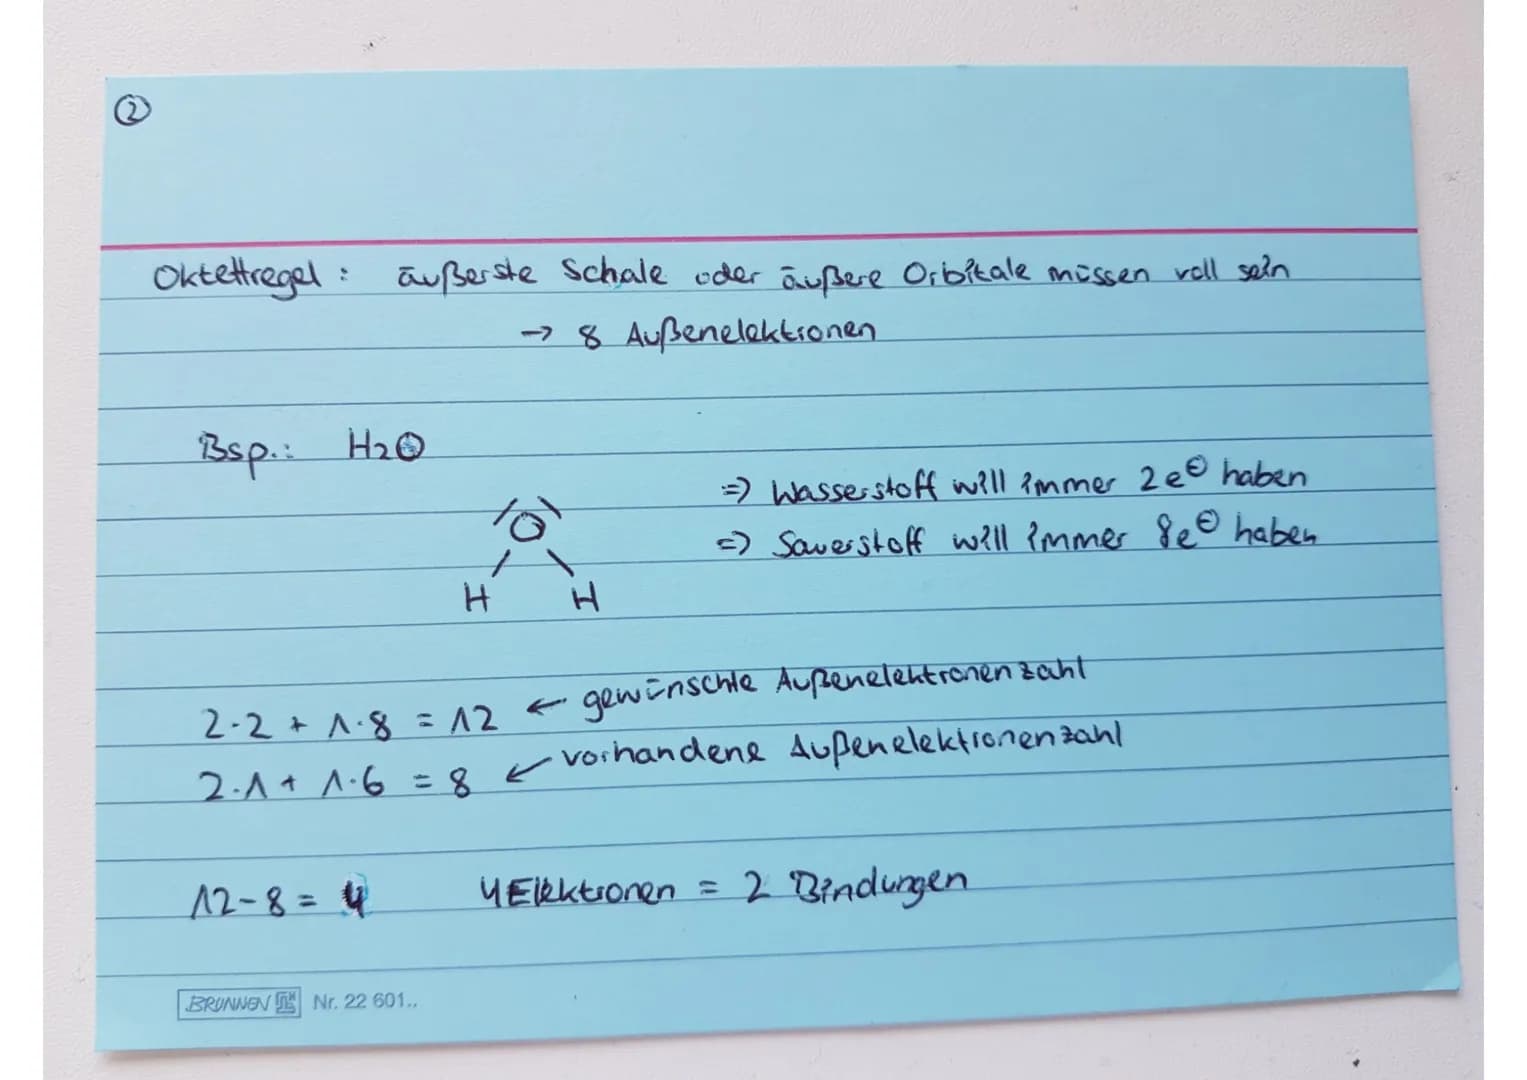 ②
Oktettregel: äußerste Schale oder äußere Orbitale müssen voll sein
→ 8 Außenelektronen
Bsp.: H2O
O
H H
=> Wasserstoff will immer 2e⊖ haben
=> Sauerstoff will immer 8e⊖ haben
2·2 + 1·8 = 12 ← gewünschte Außenelektronenzahl
2·1 + 1·6 = 8 ← vorhandene Außenelektronenzahl
12-8 = 4 4 Elektronen = 2 Bindungen
BRUNNEN Nr. 22 601..